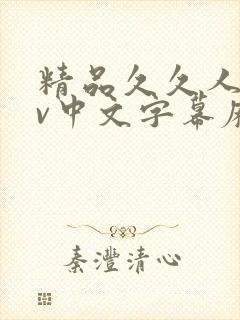 精品久久人
v中文字幕
秦灃清心